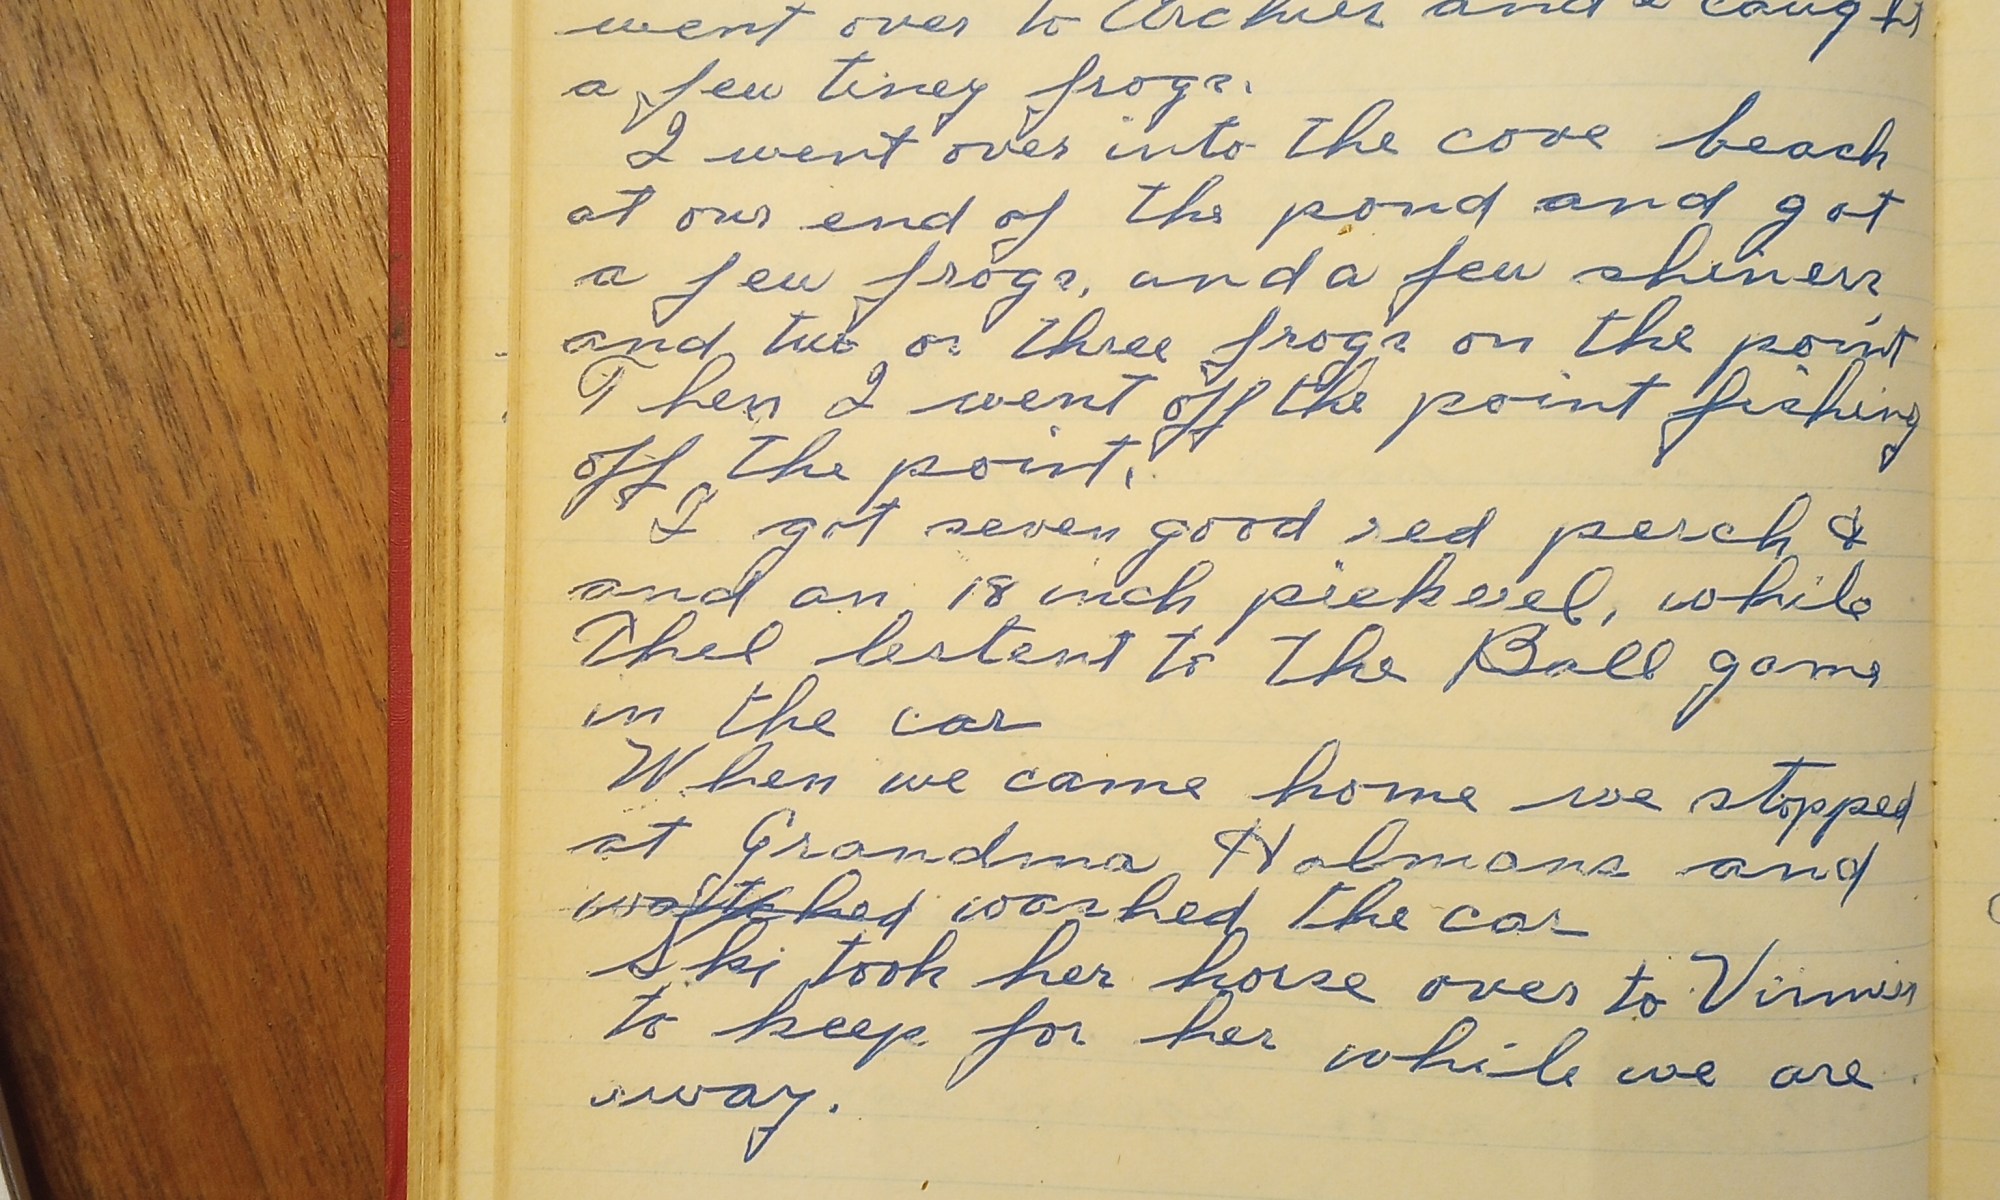 went over to Archies and I caught
a few tiney frogs.
I went over into the cove beach
at our end of the pond and got
a few frogs, and a few shiners
and two or three frogs on the point
Then I went off the point fishing
off the point.
I got seven good red perch &
and an 18 inch pickerel, while
Thel listent to the Ball game
in the car
When we came home we stopped
at Grandma Holmans and
watched washed the car
Ski took her horse over to
to keep for her while we are
away.